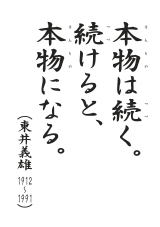 本物は続く。
続けると、
本物になる。
（東井義雄 1912〜1991）